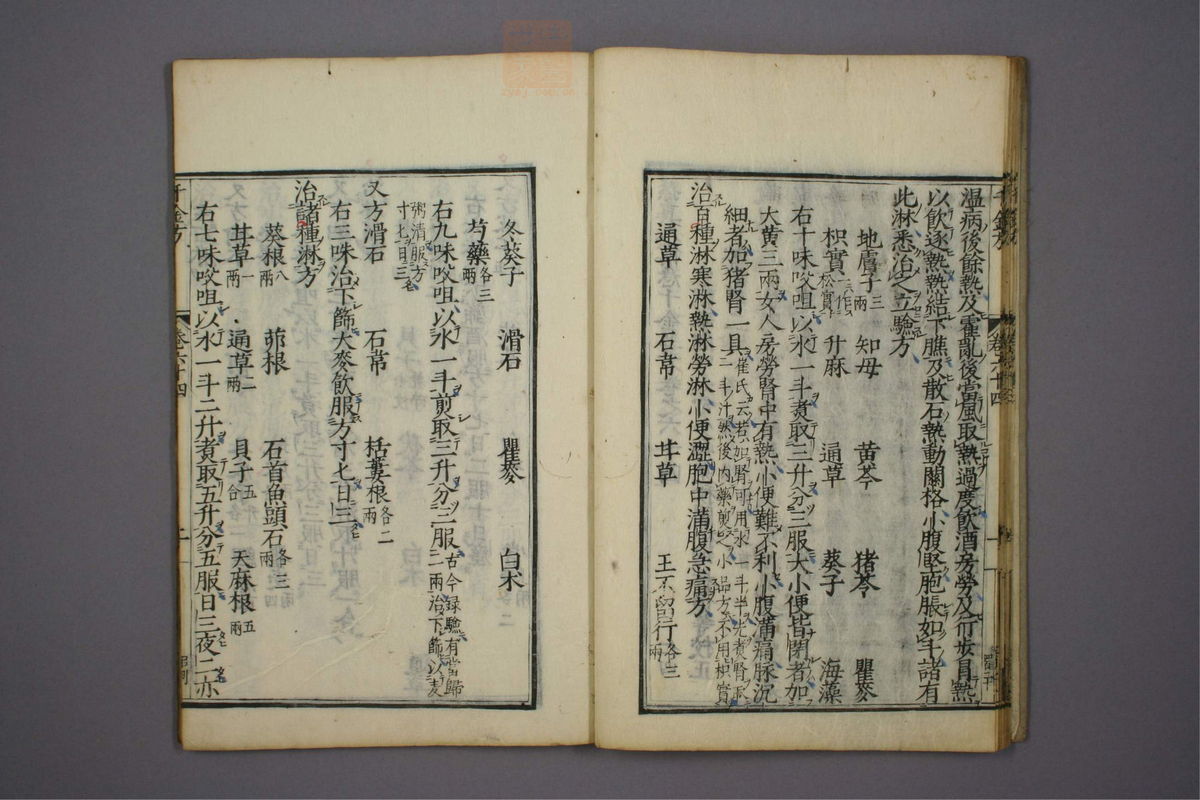 溫病後餘熱及霍亂後當風取熱過度飲酒房勞及行步冒熱
以飲逐熱熱結下膲及散石熱動關格小腹堅胞脹如斗諸有
此淋悉治之立驗方
地膚子三兩 知母 黃芩 猪苓 瞿麥
枳實一作松實 升麻 通草 葵子 海藻
右十味㕮咀以水一斗煮取三升分三服大小便皆閉者加
大黃三兩女人房勞腎中有熱小便難不利小腹滿痛脉沉
細者加猪腎一具崔氏云若加腎可用水一斗半先煮腎取一斗汁然後內藥煎之小品方不用枳實
治百種淋寒淋熱淋勞淋小便澀胞中滿腹急痛方
通草 石韋 甘草 王不留行各三兩
冬葵子 滑石 瞿麥 白朮
芍藥各三兩
右九味㕮咀以水一斗煎取三升分三服古今録驗有當歸二兩治下篩以麦
粥清服方寸匕日三
又方滑石 石韋 栝蔞根各二兩
右三味治下篩大麥飲服方寸匕日三
治諸種淋方
葵根八兩 茆根 石首魚頭石各三兩
甘草一兩 通草二兩 貝子五合 天麻根五兩
右七味㕮咀以水一斗二升煮取五升分五服日三夜二亦
千金方
卷六十四